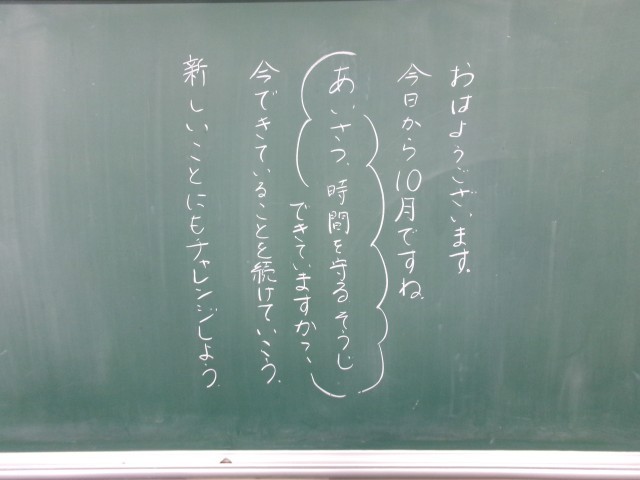 おはようございます。
今日から10月ですね。
あいさつ、時間を守る、そうじ…
できていますか?
今できていることを続けていこう。
新しいことにもチャレンジしよう。